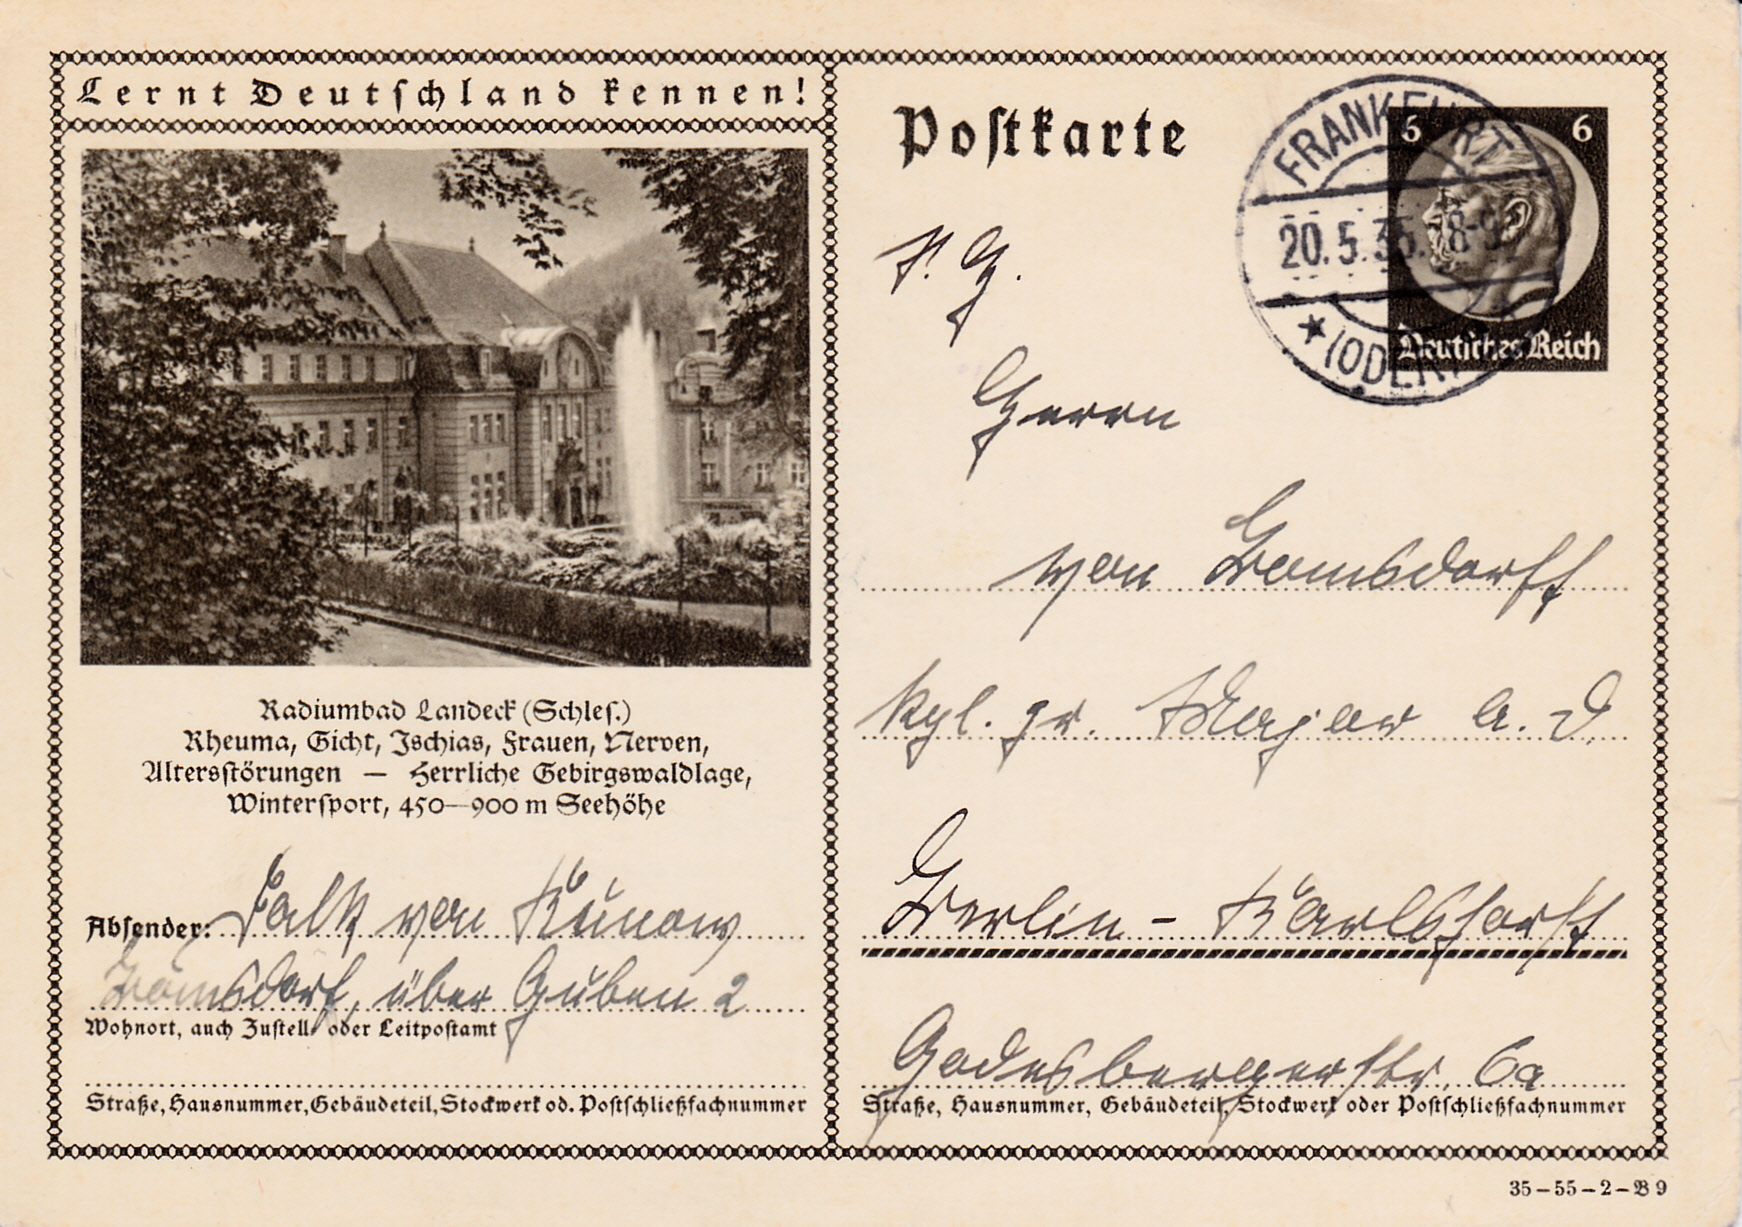 Lernt Deutschland kennen!
Radiumbad Landeck (Schles.)
Rheuma, Gicht, Ischias, Frauen, Nerven,
Altersstörungen — Herrliche Gebirgswaldlage,
Wintersport, 450—900 m Seehöhe
Absender: Falk von Kunow
über Guben 2
Wohnort, auch Zustell- oder Leitpostamt
Straße, Hausnummer, Gebäudeteil, Stockwerk od. Postschließfachnummer
Postkarte
FRANKFURT
20.5.35. 8-9
(ODER)
6 6
Deutsches Reich
Herrn
von
Kgl. pr. Major a. D.
Berlin-Karlshorst
Godesbergerstr. 6a
Straße, Hausnummer, Gebäudeteil, Stockwerk oder Postschließfachnummer
35—55—2—B 9